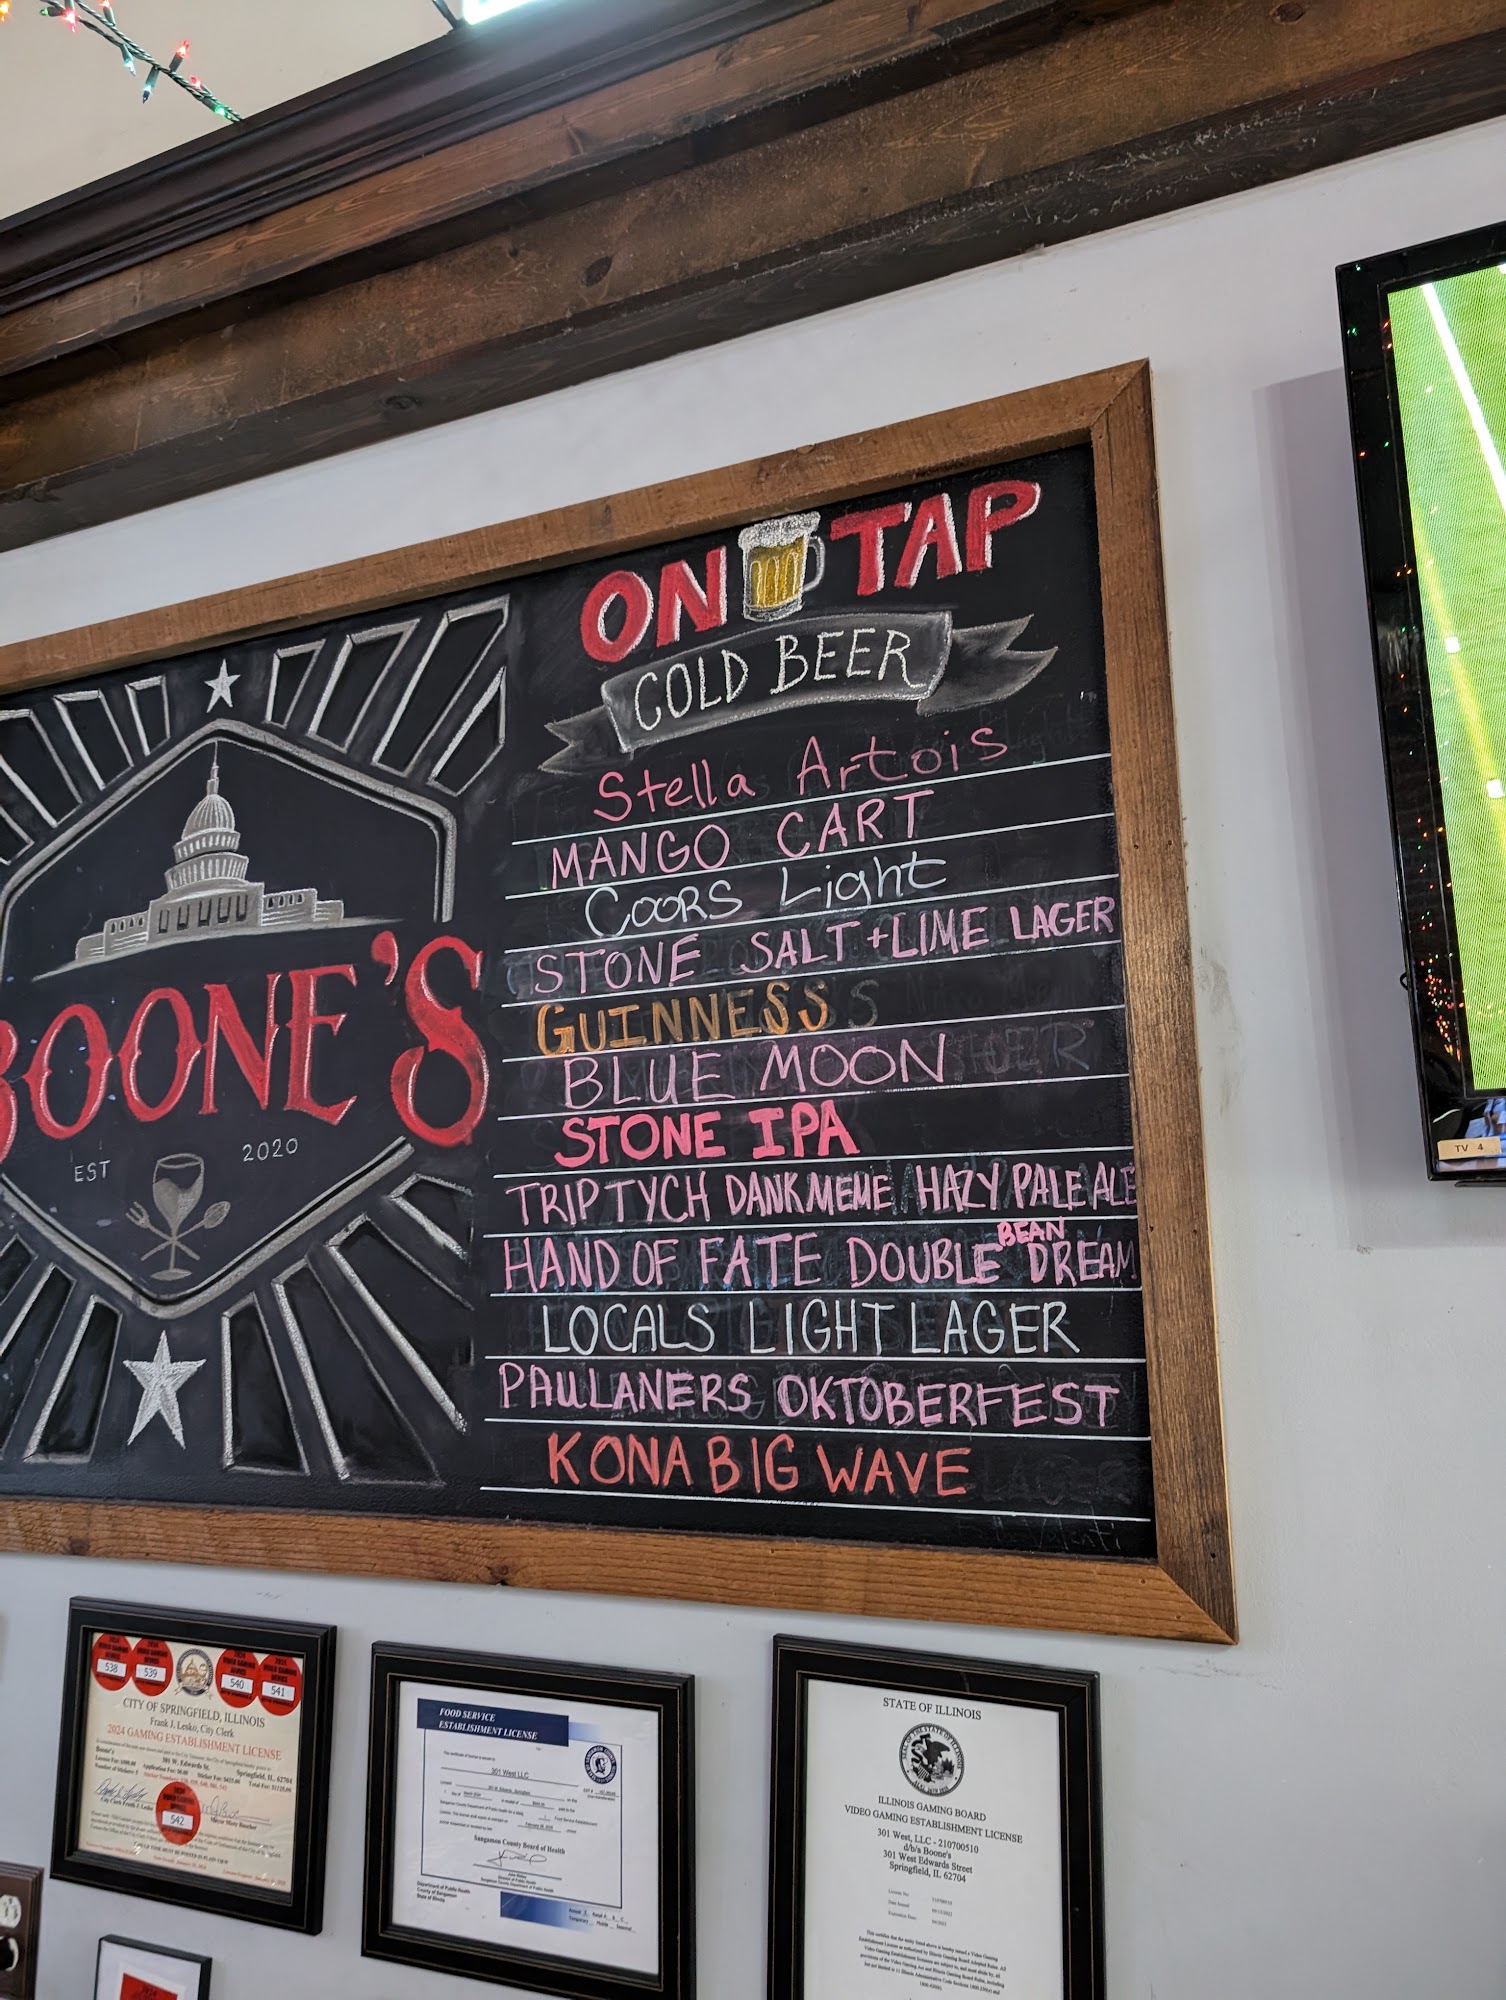 ON TAP
COLD BEER
Stella Artois
MANGO CART
COORS Light
STONE SALT + LIME LAGER
GUINNESS
BLUE MOON
STONE IPA
TRIPTYCH DANK MEME HAZY PALE ALE
HAND OF FATE DOUBLE BEAN DREAM
LOCALS LIGHT LAGER
PAULANERS OKTOBERFEST
KONA BIG WAVE
BOONE'S
EST 2020
TV 4
538
539
540
541
CITY OF SPRINGFIELD, ILLINOIS
Frank J. Lesko, City Clerk
2024 GAMING ESTABLISHMENT LICENSE
Boone's
301 W. Edwards St.
Springfield, IL 62704
542
FOOD SERVICE
ESTABLISHMENT LICENSE
301 West LLC
Sangamon County Board of Health
Department of Public Health
County of Sangamon
State of Illinois
STATE OF ILLINOIS
ILLINOIS GAMING BOARD
VIDEO GAMING ESTABLISHMENT LICENSE
301 West, LLC - 210700510
d/b/a Boone's
301 West Edwards Street
Springfield, IL 62704